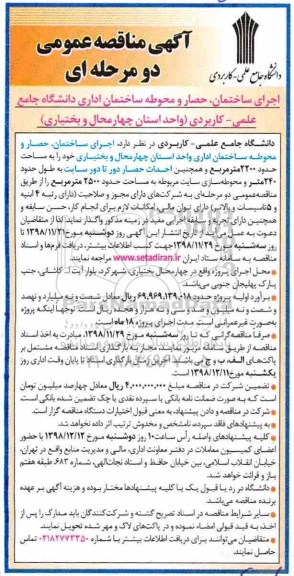 دانشگاه جامع علمی - کاربردی
آگهی مناقصه عمومی
دو مرحله ای
اجرای ساختمان، حصار و محوطه ساختمان اداری دانشگاه جامع
علمی - کاربردی (واحد استان چهارمحال و بختیاری)
دانشگاه جامع علمی - کاربردی در نظر دارد، اجرای ساختمان، حصار و
محوطه ساختمان اداری واحد استان چهارمحال و بختیاری خود را به مساحت
حدود ۲۲۰۰ مترمربع و همچنین احداث حصار دور تا دور سایت به طول حدود
۲۴۰ متر و محوطه‌سازی سایت مربوطه به مساحت حدود ۲۵۰۰ مترمربع را از طریق
مناقصه عمومی دو مرحله‌ای به شرکت‌های دارای مجوز و صلاحیت (دارای رتبه ۴ ابنیه
و ۵ تاسیسات) و دارای توان مالی، امکانات لازم برای انجام کار، حسن سابقه و
همچنین دارای تجربه و سابقه اجرایی مفید در زمینه مذکور واگذار نماید. لذا از متقاضیان
دعوت به عمل می‌آید از تاریخ انتشار این آگهی روز دوشنبه مورخ ۱۳۹۸/۱۱/۲۱ تا
روز سه‌شنبه مورخ ۱۳۹۸/۱۱/۲۹ جهت کسب اطلاعات بیشتر، دریافت فرم‌ها و اسناد
مناقصه به سامانه ستاد ایران www.setadiran.ir مراجعه نمایند.
محل اجرای پروژه واقع در چهارمحال بختیاری، شهرکرد، بلوار آیت‌ا... کاشانی، جنب
پارک پهلیجان جنوبی می‌باشد.
برآورد اولیه پروژه حدود ۶۹,۹۶۹,۱۳۹,۰۱۸ ریال معادل شصت و نه میلیارد و نهصد
و شصت و نه میلیون و صد و سی و نه هزار و هجده ریال است. توجها اینکه پروژه
به صورت غیرعمرانی است. مدت اجرای پروژه ۱۸ ماه است.
صرفا مناقصه‌گرانی که تا روز سه‌شنبه مورخ ۱۳۹۸/۱۱/۲۹، مبادرت به اخذ اسناد
مناقصه از طریق سامانه مزبور نمایند، مجاز به بارگذاری اسناد مناقصه مشتمل بر
پاکت‌های الف، ب و ج می‌باشند. آخرین زمان بارگذاری اسناد تا پایان وقت اداری روز
یکشنبه مورخ ۱۳۹۸/۱۲/۱۱ است.
تضمین شرکت در مناقصه مبلغ ۴,۰۰۰,۰۰۰,۰۰۰ ریال معادل چهارصد میلیون تومان
است که به صورت ضمانت نامه بانکی یا سپرده نقدی یا چک تضمین شده بانکی است.
شرکت در مناقصه و دادن پیشنهاد، به معنی قبول اختیارات دستگاه مناقصه گزار است.
به پیشنهادهای فاقد سپرده، نامشخص و مخدوش ترتیب اثر داده نخواهد شد.
کلیه پیشنهادهای واصله رأس ساعت ۱۰ روز دوشنبه مورخ ۱۳۹۸/۱۲/۱۲ با حضور
اعضای کمیسیون معاملات در دفتر معاونت اداری، مالی و مدیریت منابع واقع در تهران،
خیابان انقلاب اسلامی، بین خیابان حافظ و استاد نجات‌الهی، شماره ۶۸۳، طبقه هفتم
باز و قرائت خواهد شد.
دانشگاه در رد یا قبول یک یا کلیه پیشنهادها مختار بوده و هزینه آگهی بر عهده
برنده مناقصه می‌باشد.
سایر شرایط مناقصه در اسناد تصریح گشته و شرکت‌کنندگان باید مدارک را پس از
اخذ به قید قبولی امضاء نموده و در پاکت‌های لاک و مهر شده تحویل نمایند.
متقاضیان می‌توانند برای دریافت اطلاعات بیشتر با شماره ۰۲۱۸۲۷۷۳۳۵۰ تماس
حاصل نمایند.